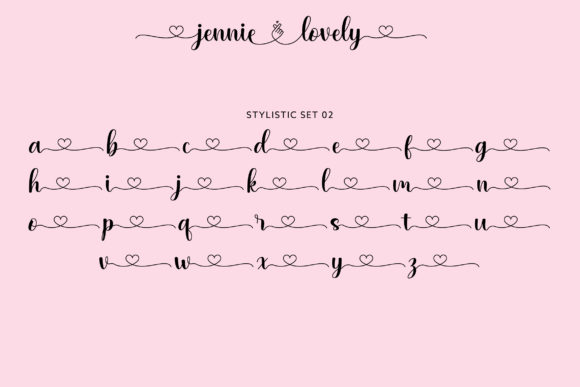 jennie lovely
STYLISTIC SET 02
a b c d e f g
h i j k l m n
o p q r s t u
v w x y z